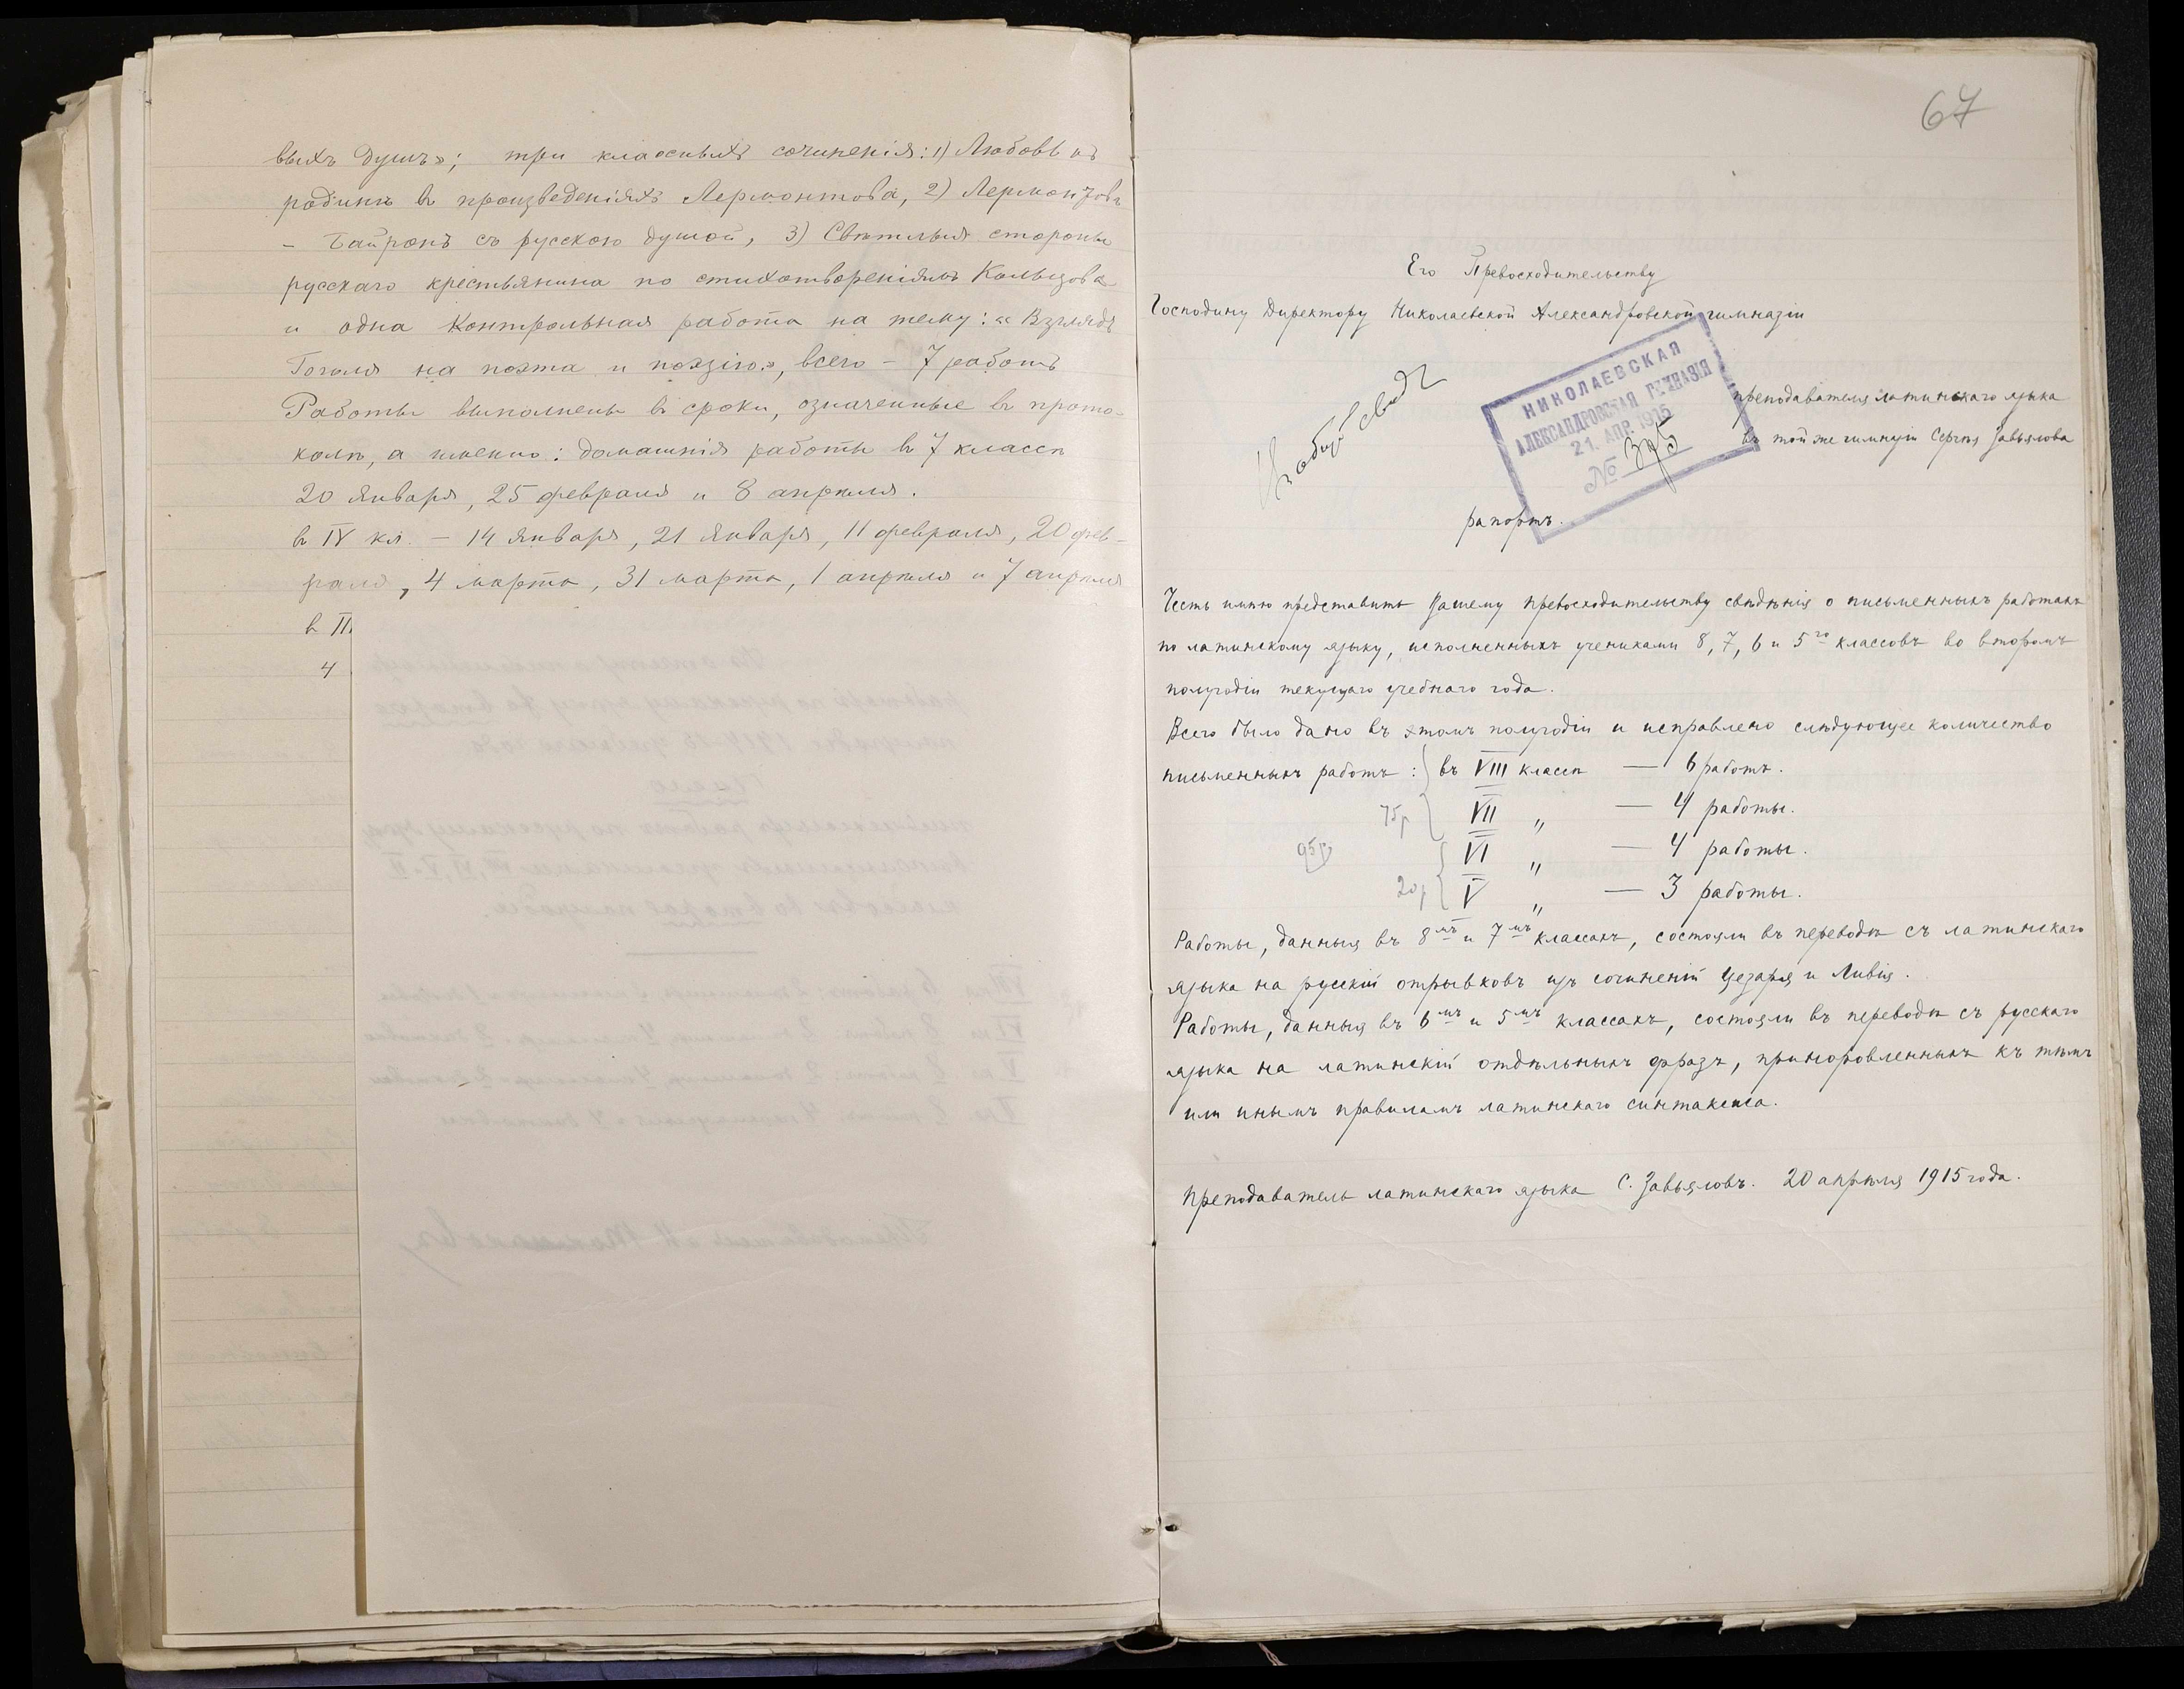 выхъ душъ»; три классныхъ сочиненія: 1) Любовь къ
родинѣ въ произведеніяхъ Лермонтова, 2) Лермонтовъ
– Байронъ съ русскою душой, 3) Свѣтлыя стороны
русскаго крестьянина по стихотвореніямъ Кольцова
и одна контрольная работа на тему: «Взглядъ
Гоголя на поэта и поэзію», всего – 7 работъ
Работы выполнены въ сроки, означенные въ прото-
колѣ, а именно: домашнія работы въ 7 классѣ
20 января, 25 февраля и 8 апрѣля.
въ IV кл. – 14 января, 21 января, 11 февраля, 20 фев-
раля, 4 марта, 31 марта, 1 апрѣля и 7 апрѣля
в III
4
67
Его Превосходительству
Господину Директору Николаевской Александровской гимназіи
НИКОЛАЕВСКАЯ
АЛЕКСАНДРОВСКАЯ ГИМНАЗІЯ
21. АПР. 1915
№ 395
преподавателя латинскаго языка
въ той же гимназіи Сергѣя Завьялова
рапортъ.
Честь имѣю представить Вашему Превосходительству свѣдѣнія о письменныхъ работахъ
по латинскому языку, исполненныхъ учениками 8, 7, 6 и 5го классовъ во второмъ
полугодіи текущаго учебнаго года.
Всего было дано въ этомъ полугодіи и исправлено слѣдующее количество
письменныхъ работъ: въ VIII классѣ — 6 работъ.
75р VII „ — 4 работы.
95р VI „ — 4 работы.
20р V „ — 3 работы.
Работы, данныя въ 8мъ и 7мъ классахъ, состояли въ переводѣ съ латинскаго
языка на русскій отрывковъ изъ сочиненій Цезаря и Ливія.
Работы, данныя въ 6мъ и 5мъ классахъ, состояли въ переводѣ съ русскаго
языка на латинскій отдѣльныхъ фразъ, приноровленныхъ къ тѣмъ
или инымъ правиламъ латинскаго синтаксиса.
Преподаватель латинскаго языка С. Завьяловъ. 20 апрѣля 1915 года.